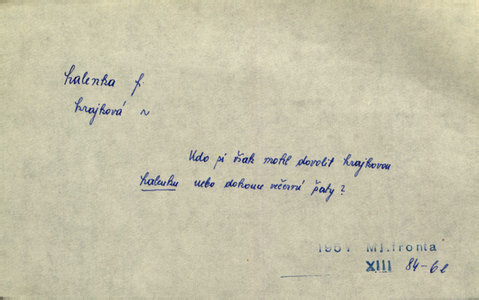 halenka f.
krajková ~
Kdo si však mohl dovolit krajkovou
halenku nebo dokonce večerní šaty?
1957 Ml.fronta
XIII 84-62